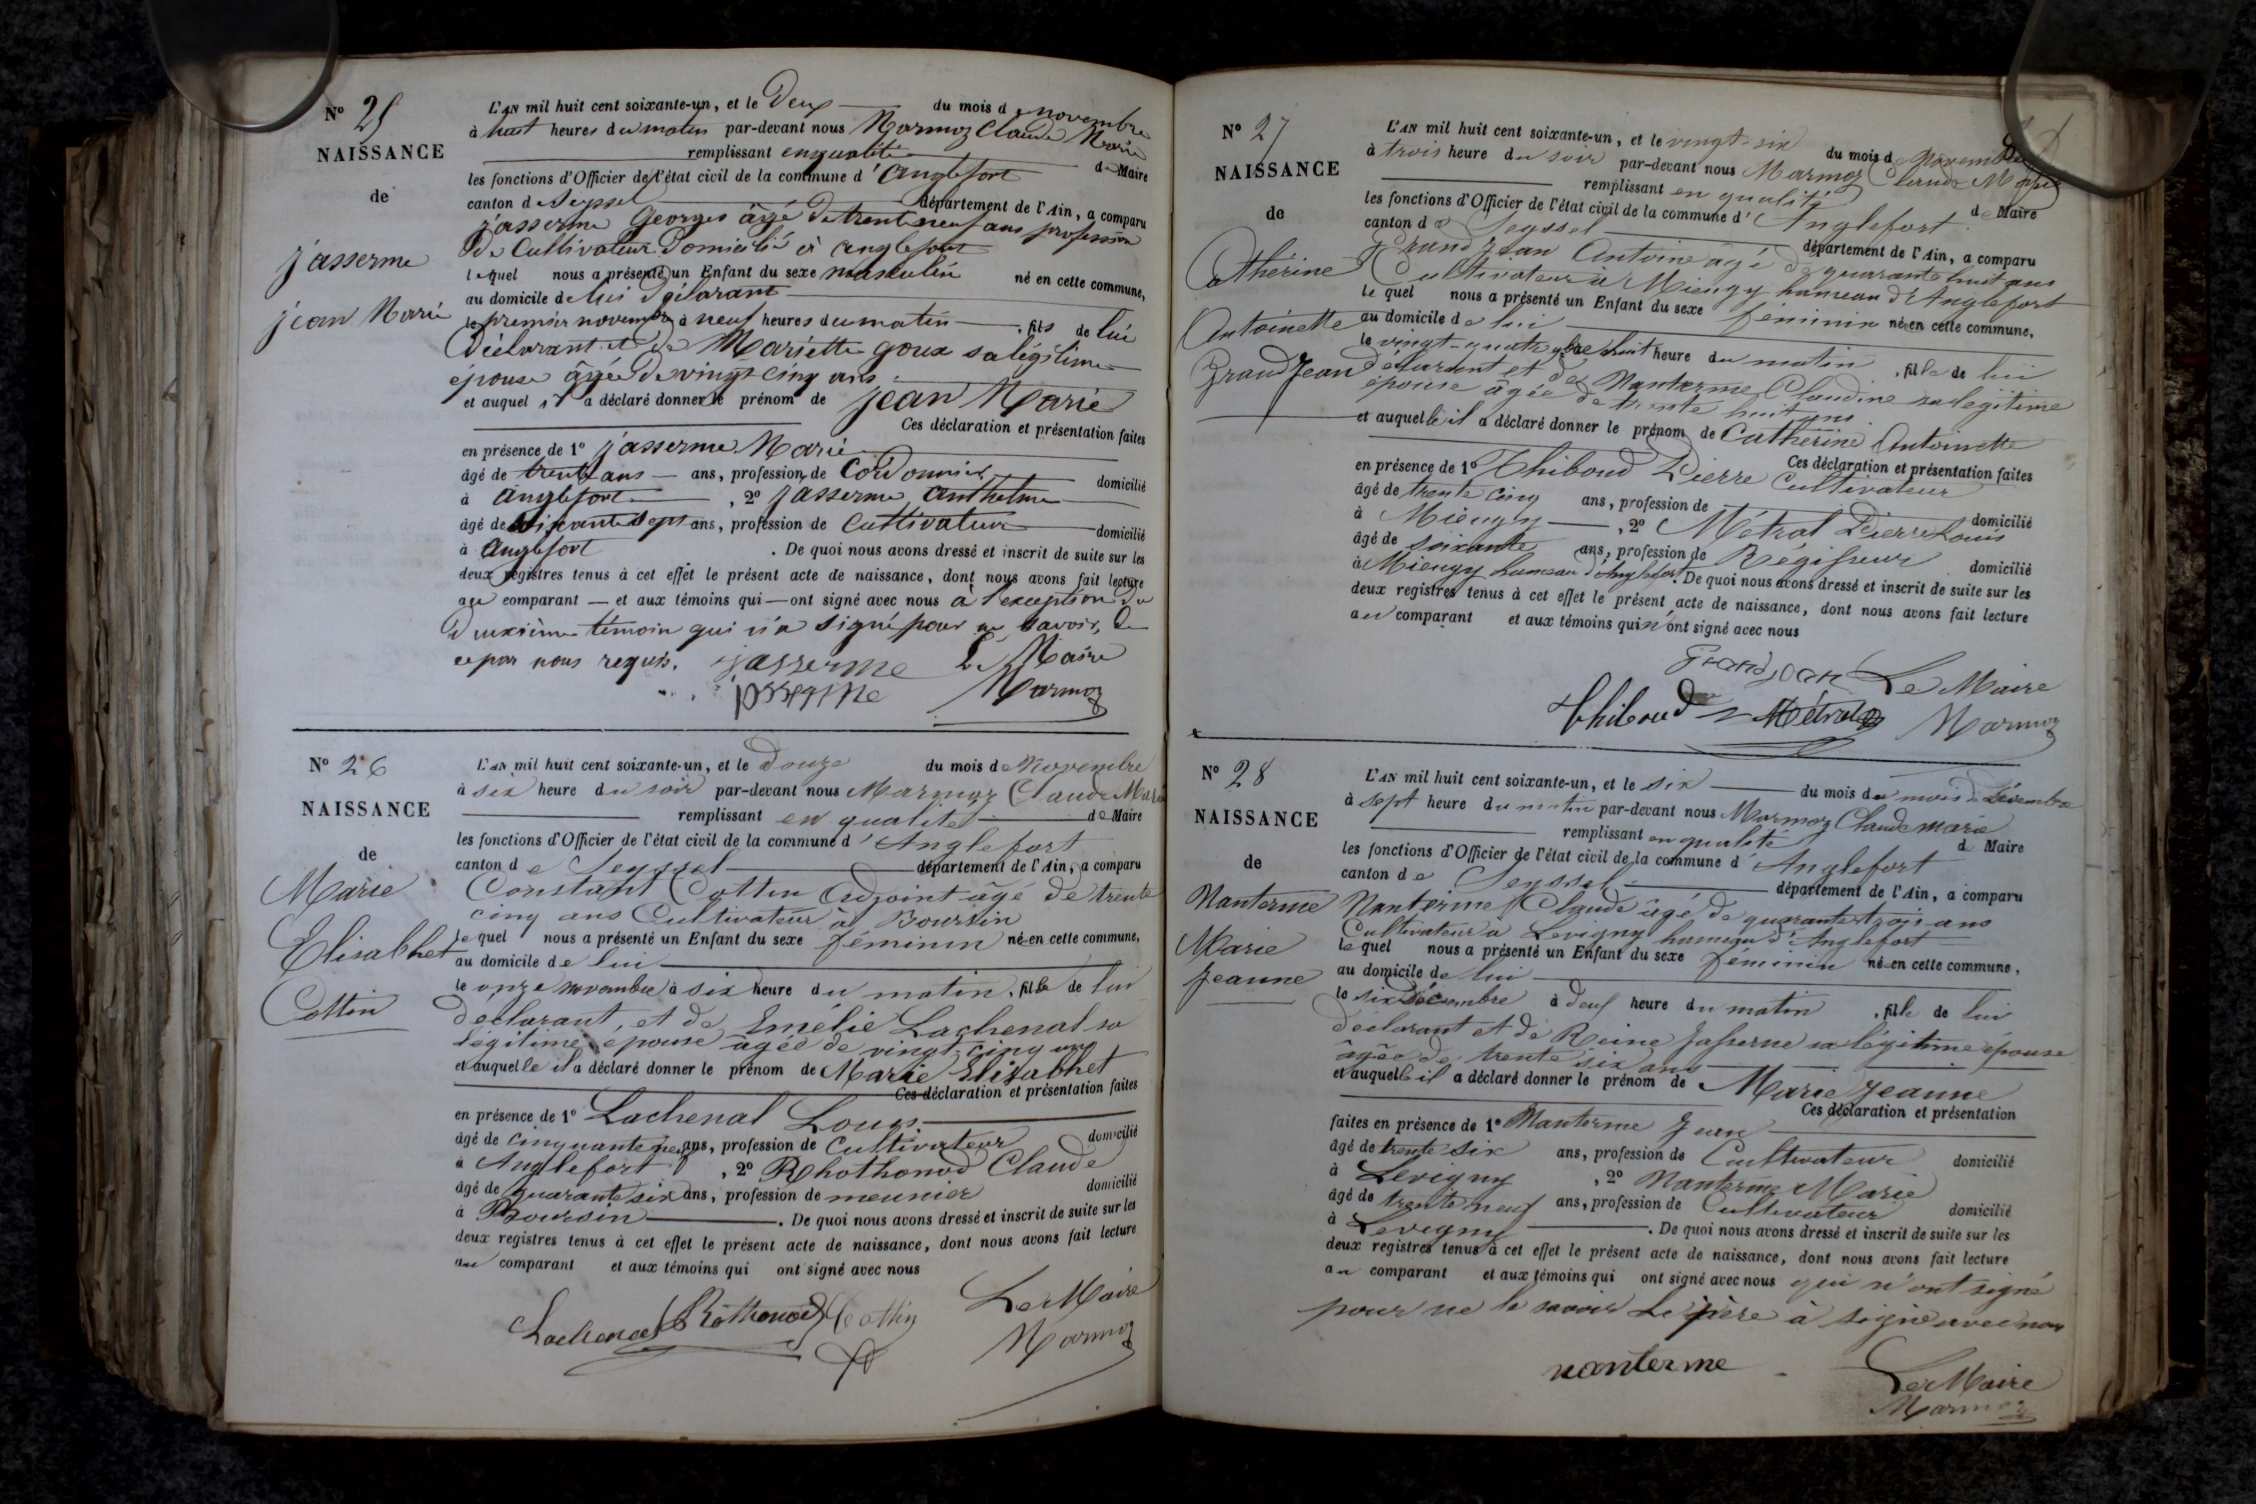 N° 25
NAISSANCE
de
jasserme
jean Marie
L'AN mil huit cent soixante-un, et le Deux du mois de novembre
à huit heures du matin par-devant nous Marmoz Claude Marie
remplissant en qualité de Maire
les fonctions d'Officier de l'état civil de la commune d'Anglefort
canton de Seyssel département de l'Ain, a comparu
jasserme Georges âgé de trente neuf ans profession
De Cultivateur Domicilié à anglefort
lequel nous a présenté un Enfant du sexe masculin né en cette commune,
au domicile de lui Déclarant
le premier novembre à neuf heures du matin, fils de lui
Déclarant et de Mariette goux sa légitime
épouse âgée De vingt cinq ans
et auquel il a déclaré donner le prénom de jean Marie
Ces déclaration et présentation faites
en présence de 1° jasserme Marie
âgé de trente ans ans, profession de Cordonnier domicilié
à anglefort, 2° jasserme anthelme
âgé de soixante sept ans, profession de Cultivateur domicilié
à anglefort. De quoi nous avons dressé et inscrit de suite sur les
deux registres tenus à cet effet le présent acte de naissance, dont nous avons fait lecture
au comparant et aux témoins qui ont signé avec nous à l'exception du
Deuxième témoin qui n'a signé pour ne savoir, de
ce par nous requis. jasserme Le Maire
jasserme Marmoz
N° 26
NAISSANCE
de
Marie
Elisabhet
Cottin
L'AN mil huit cent soixante-un, et le Douze du mois de Novembre
à six heure du soir par-devant nous Marmoz Claude Marie
remplissant en qualité de Maire
les fonctions d'Officier de l'état civil de la commune d'Anglefort
canton de Seyssel département de l'Ain, a comparu
Constant Cottin Adjoint âgé de trente
cinq ans Cultivateur à Boursin
le quel nous a présenté un Enfant du sexe féminin né en cette commune,
au domicile de lui
le onze novembre à six heure du matin, fille de lui
déclarant, et de Emélie Lachenal sa
légitime épouse âgée de vingt-cinq ans
et auquelle il a déclaré donner le prénom de Marie Elisabhet
Ces déclaration et présentation faites
en présence de 1° Lachenal Louis
âgé de cinquante neuf ans, profession de Cultivateur domicilié
à Anglefort, 2° Rhothonod Claude
âgé de quarante six ans, profession de meunier domicilié
à Boursin. De quoi nous avons dressé et inscrit de suite sur les
deux registres tenus à cet effet le présent acte de naissance, dont nous avons fait lecture
au comparant et aux témoins qui ont signé avec nous
Lachenal Rothonod Cottin Le Maire
Marmoz
N° 27
NAISSANCE
de
Cathérine
Antoinette
GrandJean
L'AN mil huit cent soixante-un, et le vingt-six du mois de Novembre
à trois heure du soir par-devant nous Marmoz Claude Marie
remplissant en qualité de Maire
les fonctions d'Officier de l'état civil de la commune d'Anglefort
canton de Seyssel département de l'Ain, a comparu
GrandJean Antoine âgé de quarante huit ans
Cultivateur à Mieugy hameau d'Anglefort
le quel nous a présenté un Enfant du sexe féminin né en cette commune,
au domicile de lui
le vingt-quatre 9bre à huit heure du matin, fille de lui
déclarant et de Nanterme Claudine sa légitime
épouse âgée de trente huit ans
et auquelle il a déclaré donner le prénom de Cathérine Antoinette
Ces déclaration et présentation faites
en présence de 1° Thiboud Pierre Cultivateur
âgé de trente cinq ans, profession de domicilié
à Mieugy, 2° Métral Pierre Louis
âgé de soixante ans, profession de Régisseur domicilié
à Mieugy hameau d'Anglefort. De quoi nous avons dressé et inscrit de suite sur les
deux registres tenus à cet effet le présent acte de naissance, dont nous avons fait lecture
au comparant et aux témoins qui n'ont signé avec nous
Grandjean Le Maire
Thiboud Métral Marmoz
N° 28
NAISSANCE
de
Nanterme
Marie
Jeanne
L'AN mil huit cent soixante-un, et le six du mois du mois de Décembre
à sept heure du matin par-devant nous Marmoz Claude Marie
remplissant en qualité d Maire
les fonctions d'Officier de l'état civil de la commune d'Anglefort
canton de Seyssel département de l'Ain, a comparu
Nanterme Claude âgé de quarante trois ans
Cultivateur à Levigny hameau d'Anglefort
le quel nous a présenté un Enfant du sexe féminin né en cette commune,
au domicile de lui
le six Décembre à deux heure du matin, fille de lui
déclarant et de Reine Jasserme sa légitime épouse
âgée de trente six ans
et auquelle il a déclaré donner le prénom de Marie Jeanne
Ces déclaration et présentation
faites en présence de 1° Nanterme Jean
âgé de trente six ans, profession de Cultivateur domicilié
à Levigny, 2° Nanterme Marie
âgé de trente neuf ans, profession de Cultivateur domicilié
à Levigny. De quoi nous avons dressé et inscrit de suite sur les
deux registres tenus à cet effet le présent acte de naissance, dont nous avons fait lecture
au comparant et aux témoins qui ont signé avec nous qui n'ont signé
pour ne le savoir Le père à signé avec nous
nanterme Le Maire
Marmoz